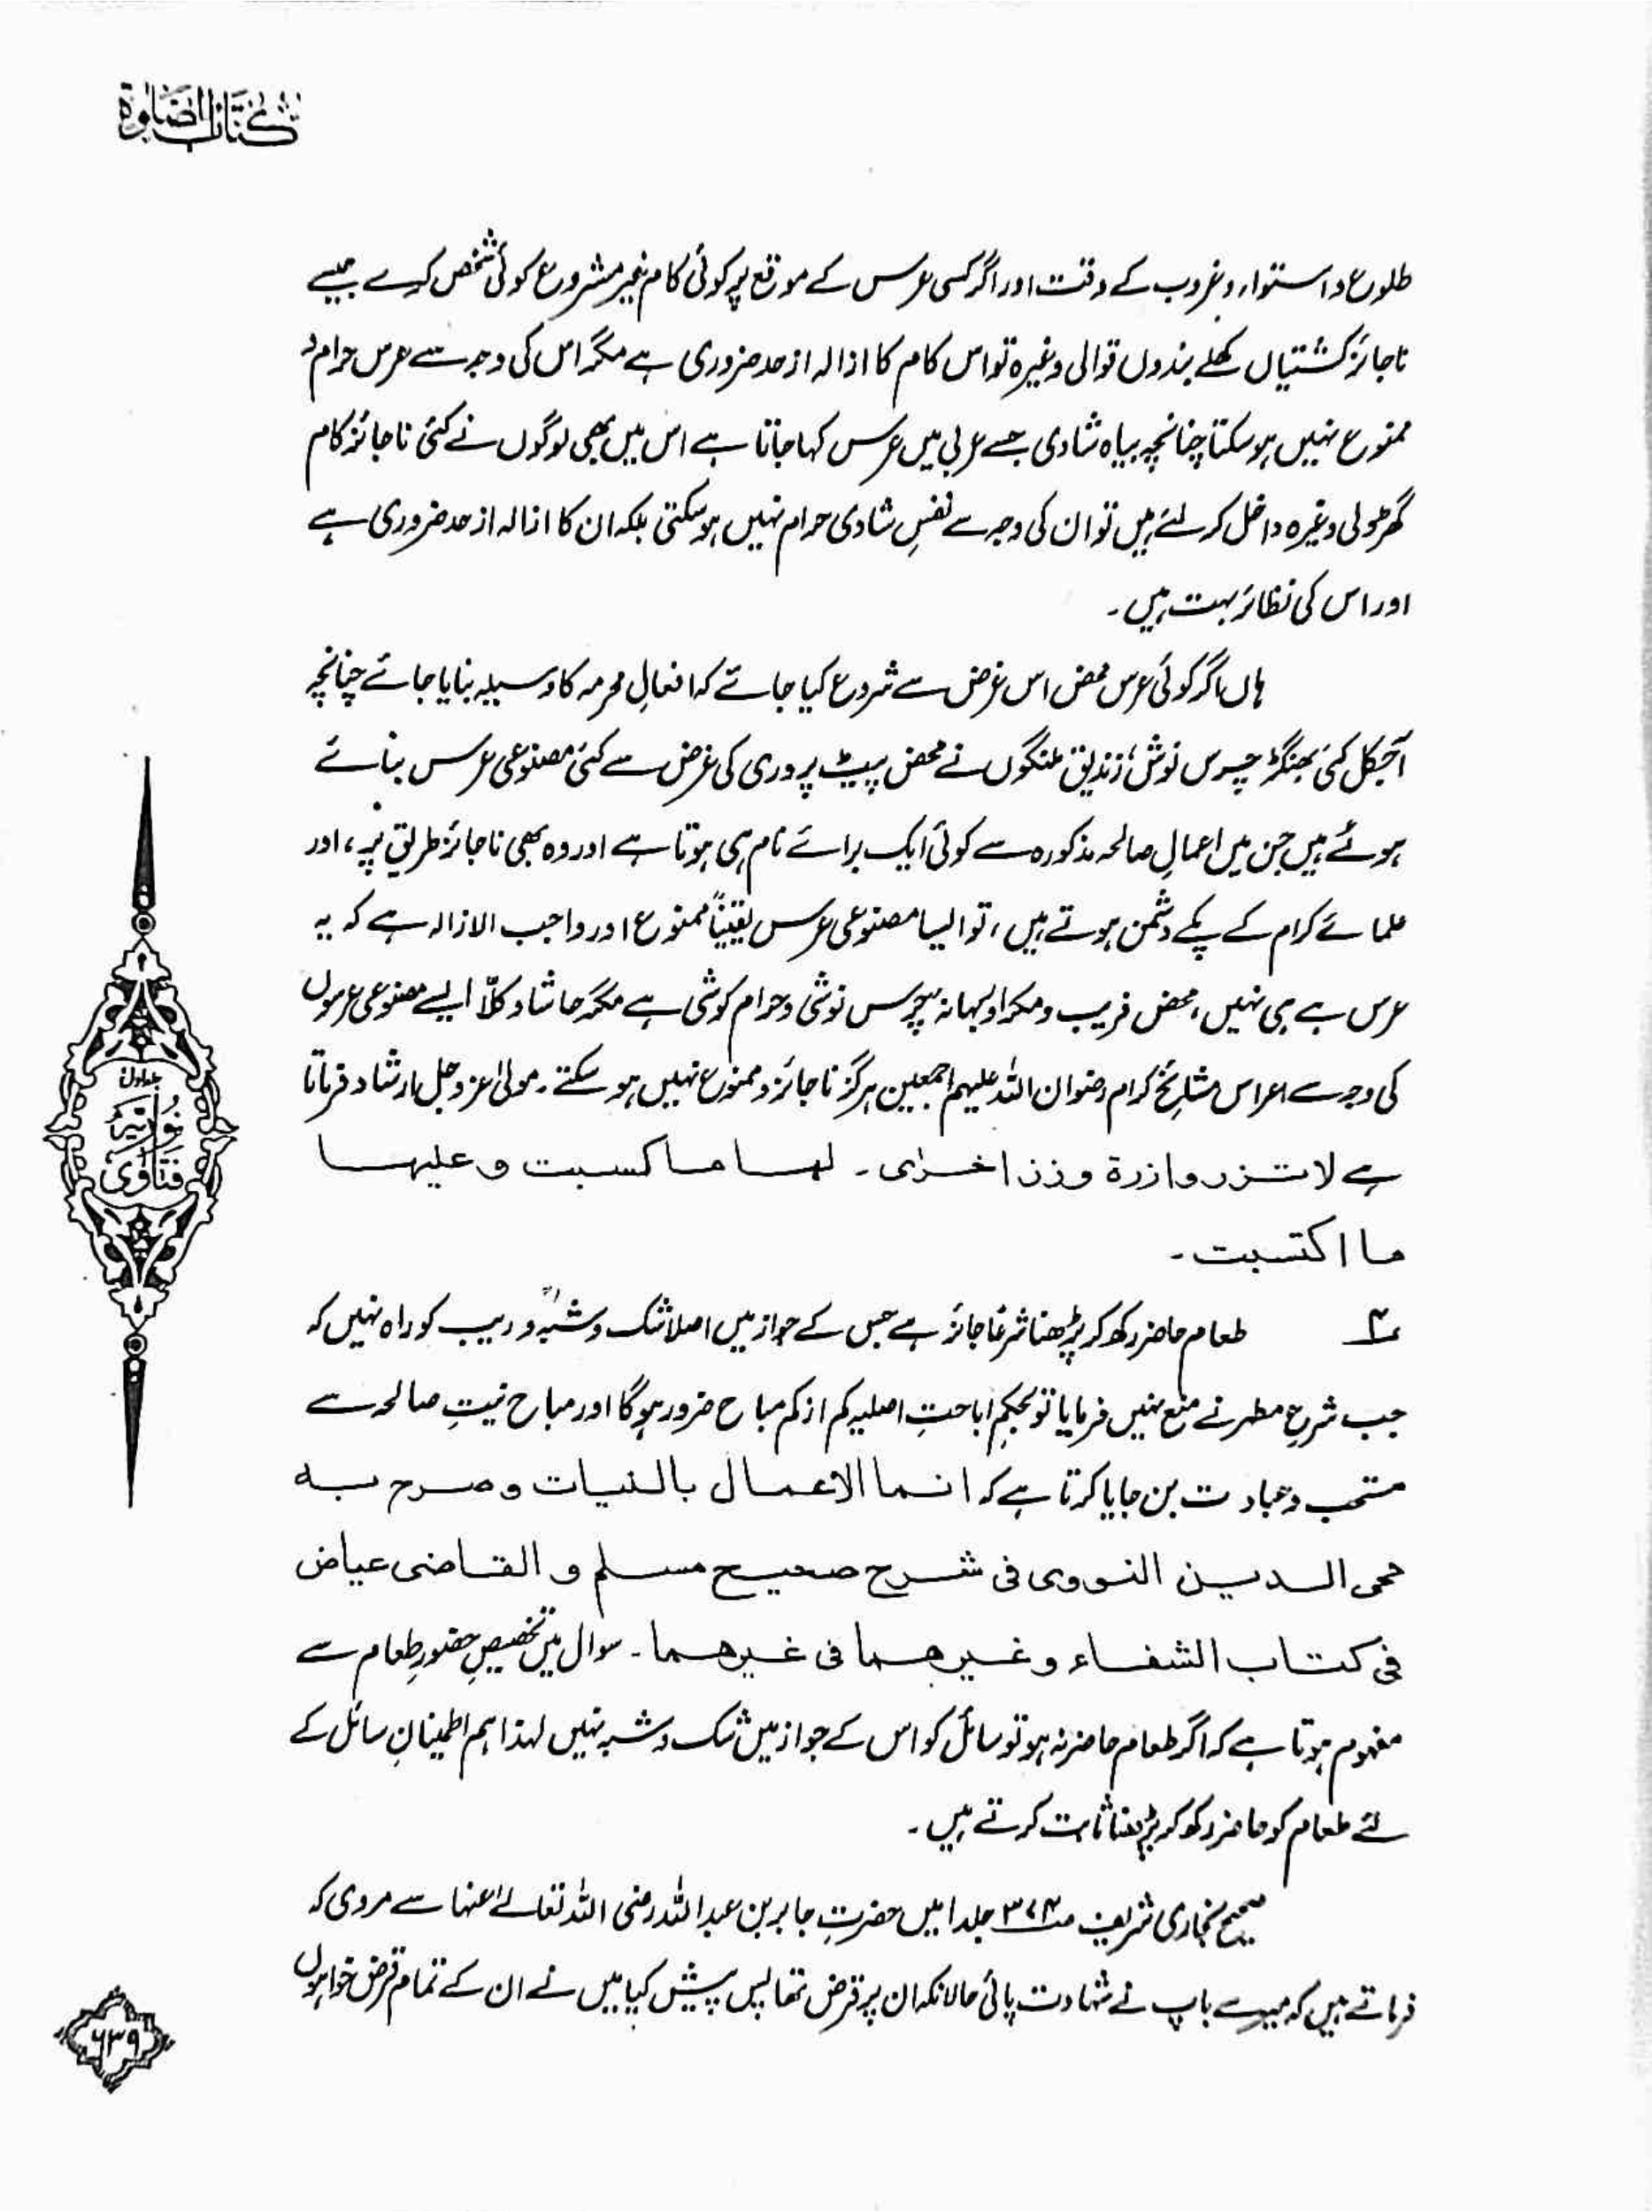 كتاب الصلوة
طلوع و استواء و غروب کے وقت اور اگر کسی عرس کے موقع پر کوئی کام غیر مشروع کوئی شخص کرے جیسے
ناجائز کشتیاں کھلے بندوں قوالی وغیرہ تو اس کام کا ازالہ از حد ضروری ہے مگر اس کی وجہ سے عرس حرام و
ممنوع نہیں ہو سکتا چنانچہ بیاہ شادی جسے عربی میں عرس کہا جاتا ہے اس میں بھی لوگوں نے کئی ناجائز کام
گھڑولی وغیرہ داخل کر لئے ہیں تو ان کی وجہ سے نفسِ شادی حرام نہیں ہو سکتی بلکہ ان کا ازالہ از حد ضروری ہے
اور اس کی نظائر بہت ہیں۔
ہاں اگر کوئی عرس محض اس غرض سے شروع کیا جائے کہ افعالِ محرمہ کا وسیلہ بنایا جائے چنانچہ
آجکل کئی بھنگڑ چرس نوش، زندیق ملنگوں نے محض پیٹ پروری کی غرض سے کئی مصنوعی عرس بنائے
ہوئے ہیں جن میں اعمالِ صالحہ مذکورہ سے کوئی ایک برائے نام ہی ہوتا ہے اور وہ بھی ناجائز طریق پر، اور
علمائے کرام کے پکے دشمن ہوتے ہیں، تو ایسا مصنوعی عرس یقیناً ممنوع اور واجب الازالہ ہے کہ یہ
عرس ہے ہی نہیں، محض فریب و مکر اور بہانہ چرس نوشی و حرام کوشی ہے مگر حاشا و کلّا ایسے مصنوعی عرسوں
کی وجہ سے اعراس مشائخ کرام رضوان اللہ علیہم اجمعین ہرگز ناجائز و ممنوع نہیں ہو سکتے۔ مولیٰ عز وجل ارشاد فرماتا
ہے لا تزر وازرة وزر اخرٰى۔ لها ما كسبت و عليها
ما اكتسبت۔
۴؎ طعام حاضر رکھ کر پڑھنا شرعًا جائز ہے جس کے جواز میں اصلا شک و شبہ و ریب کو راہ نہیں کہ
جب شرعِ مطہر نے منع نہیں فرمایا تو بحکمِ اباحتِ اصلیہ کم از کم مباح ضرور ہوگا اور مباح نیتِ صالحہ سے
مستحب و عبادت بن جایا کرتا ہے کہ انما الاعمال بالنيات و صرح به
محى الدين النووى فى شرح صحيح مسلم و القاضى عياض
فى كتاب الشفاء و غيرهما فى غيرهما۔ سوال میں تخصیصِ حضورِ طعام سے
مفہوم ہوتا ہے کہ اگر طعام حاضر نہ ہو تو سائل کو اس کے جواز میں شک و شبہ نہیں لہذا ہم اطمینانِ سائل کے
لئے طعام کو حاضر رکھ کر پڑھنا ثابت کرتے ہیں۔
صحیح بخاری شریف ص۳۷۴ جلد۱ میں حضرتِ جابر بن عبد اللہ رضی اللہ تعالےٰ عنہا سے مروی کہ
فرماتے ہیں کہ میرے باپ نے شہادت پائی حالانکہ ان پر قرض تھا پس پیش کیا میں نے ان کے تمام قرض خواہوں
جلد اول
نوریہ
فتاویٰ
۶۳۹